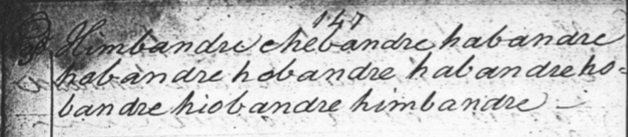 147
Himbandre chebandre habandre
habandre hobandre habandre ho=
bandre hiobandre himbandre —